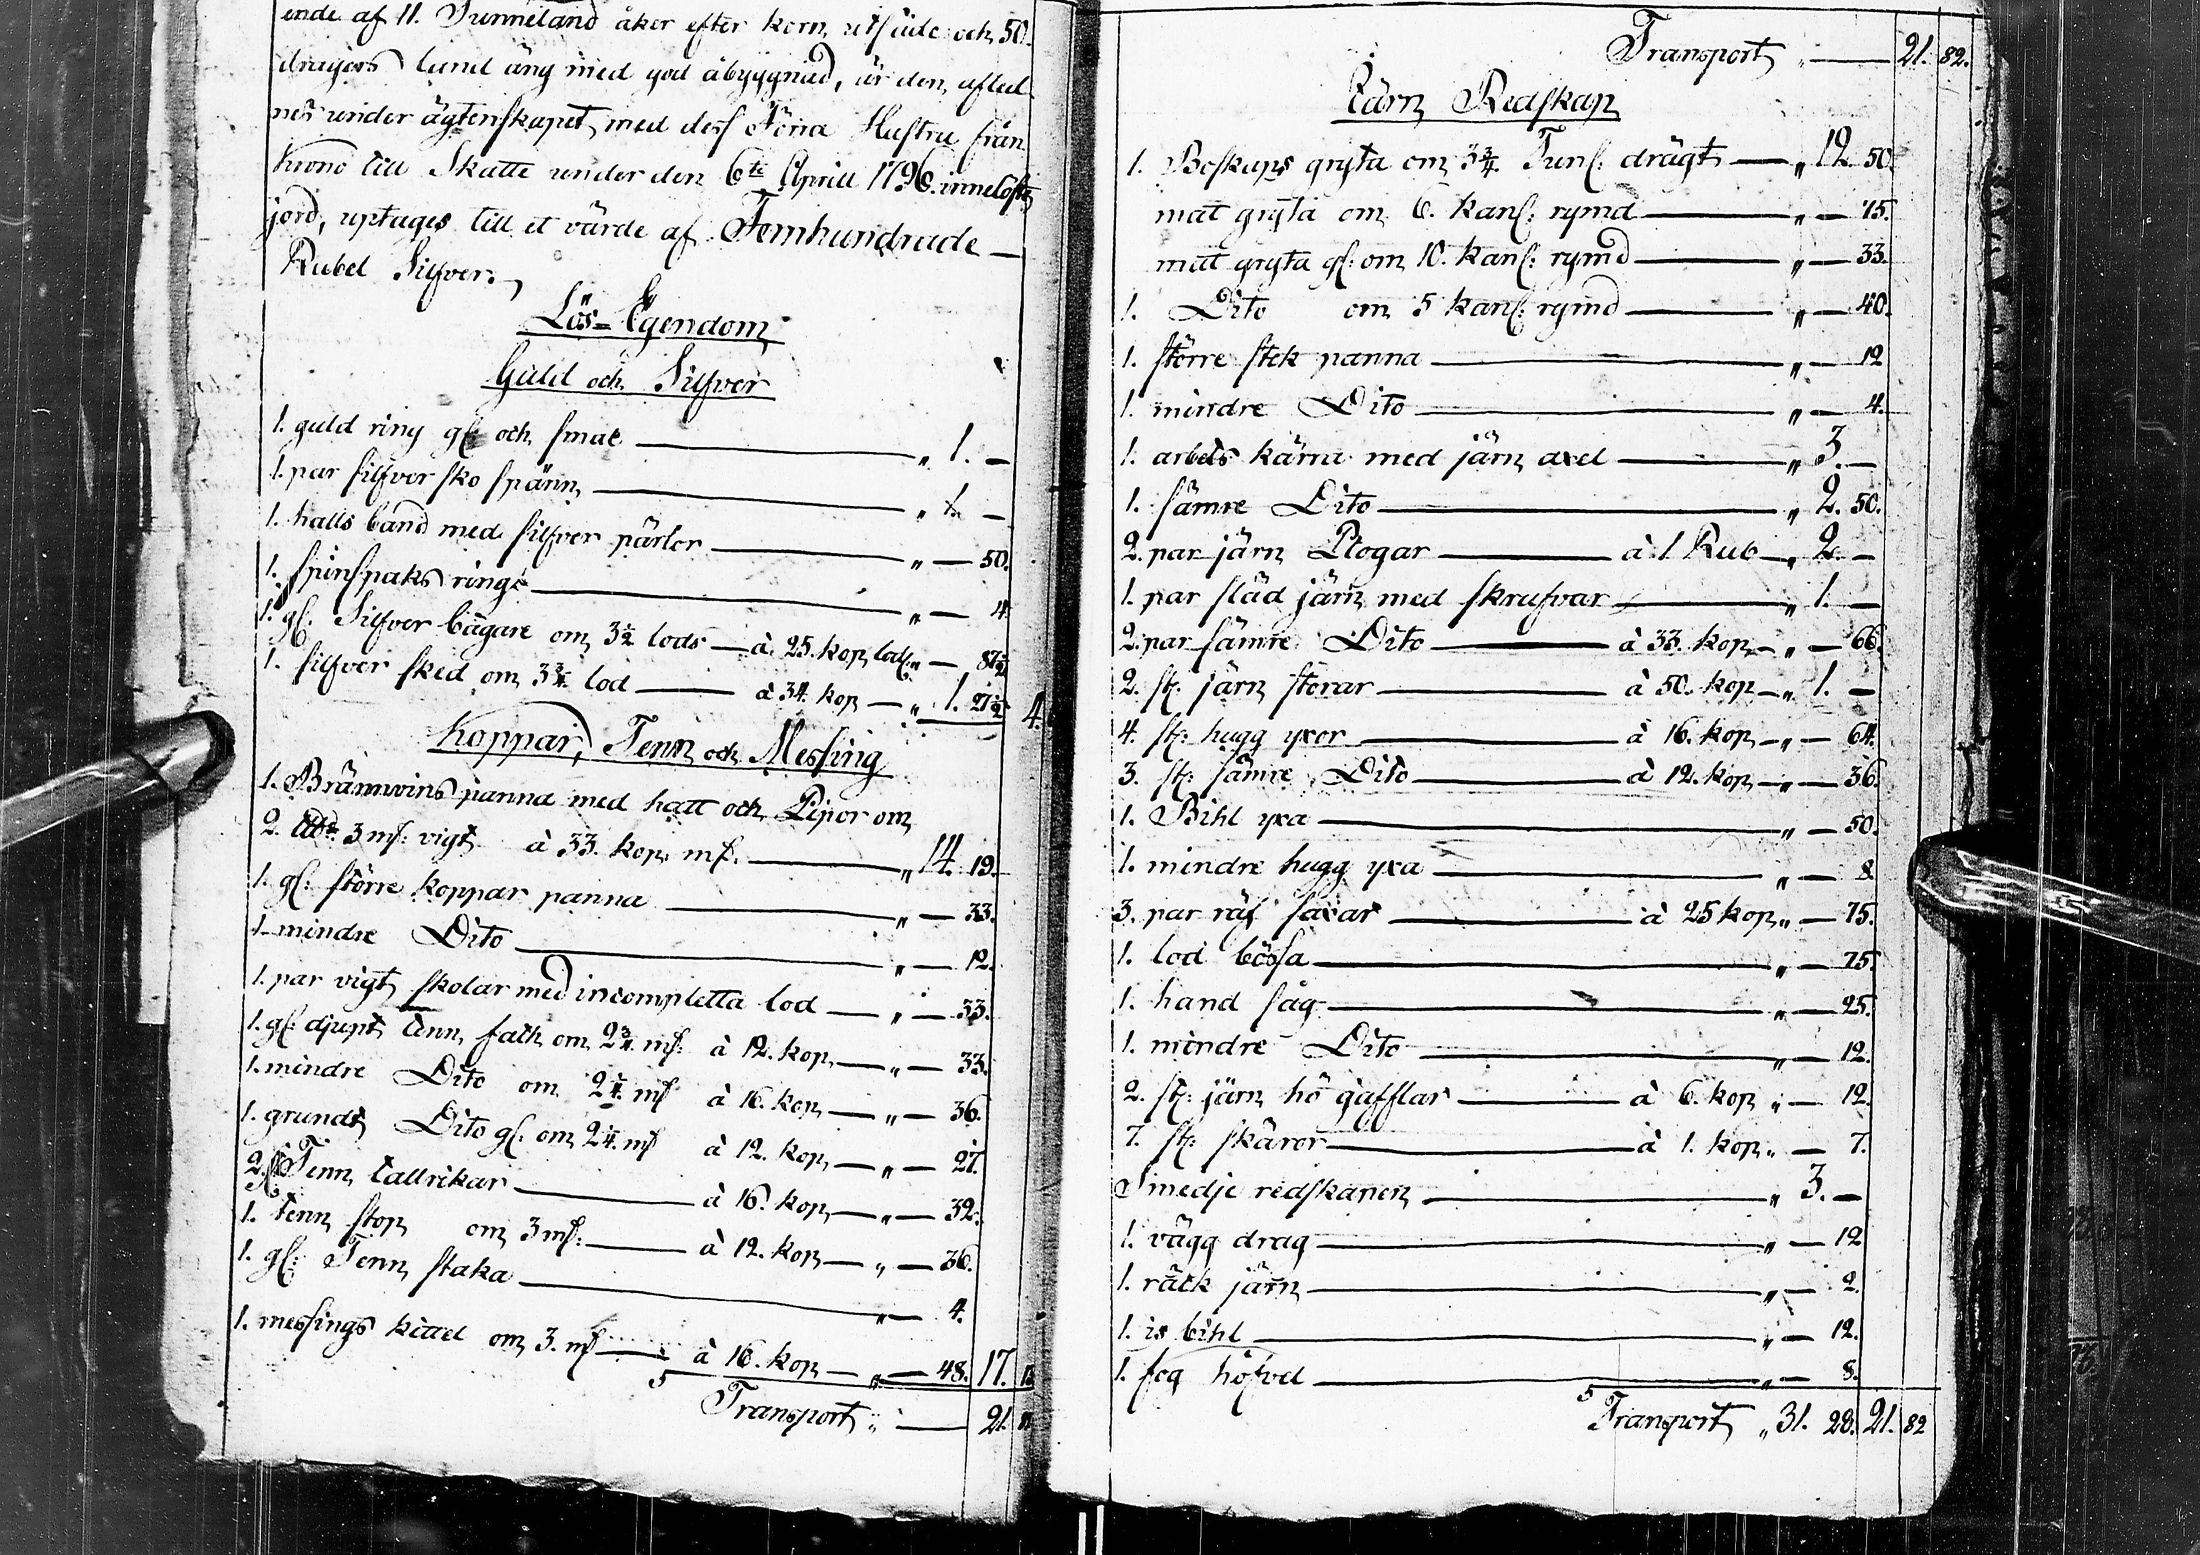 ende af 11. Tunneland åker efter korn utsäde och 50.
dragors land äng med god åbyggnad, är den afled-
nes under ägtenskapet med dess Förra Hustru från
Krono till Skatte under den 6te Aprill 1796. inneloste
jord, uptages till et värde af Femhundrade —
Rubel Silfver.
Lös-Egendom
Guld och Silfver
1. guld ring gl: och smal — „ 1. —
1. par silfver sko spänn — „ 1. —
1. halls band med silfver pärlor — „ — 50.
1. spinspaks ring — „ — 4.
1. gl: Silfver bägare om 3½ lods — à 25. kop lod „ — 87½
1. silfver sked om 3¾ lod — à 34. kop — „ 1. 27½ 4.
Koppar, Tenn och Messing
1. Brännvins panna med hatt och Pipor om
2. 3 m℔: vigt à 33. kop. m℔. — „ 14. 19.
1. gl: större koppar panna — „ — 33.
1. mindre Dito — „ — 12.
1. par vigt skolar med incompletta lod — „ — 33.
1. gl: djupt tenn fath om 2¾ m℔: à 12. kop — „ — 33.
1. mindre Dito om 2¼ m℔ à 16. kop — „ — 36.
1. grundt Dito gl: om 2¼ m℔ à 12. kop — „ — 27.
2. Tenn tallrikar — à 16. kop — „ — 32.
1. tenn stop om 3 m℔: — à 12. kop — „ — 36.
1. gl: Tenn staka — „ — 4.
1. messings kittel om 3. m℔ — à 16. kop — „ — 48. 17.
Transport „ — 21.
Transport „ — 21. 82.
Järn Redskap
1. Boskaps gryta om 3¾ Tun: drägt — „ 12. 50.
mat gryta om 6. kan: rymd — „ — 75.
mat gryta gl: om 10. kan: rymd — „ — 33.
1. Dito om 5 kan: rymd — „ — 40.
1. större stek panna — „ — 12
1. mindre Dito — „ — 4.
1. arbets kärra med järn axel — „ 3. —
1. sämre Dito — „ 2. 50.
2. par järn Plogar — à 1 Rub — „ 2. —
1. par släd järn med skrufvar — „ 1. —
2. par sämre Dito — à 33. kop — „ — 66.
2. st: järn störar — à 50. kop — „ 1. —
4. st: hugg yxor — à 16. kop — „ — 64.
3. st: sämre Dito — à 12. kop — „ — 36.
1. Bihl yxa — „ — 50.
1. mindre hugg yxa — „ — 8
3. par räf saxar — à 25 kop „ — 75.
1. lod bössa — „ — 75.
1. hand såg — „ — 25.
1. mindre Dito — „ — 12.
2. st: järn hö gafflar — à 6. kop „ — 12.
7. st: skäror — à 1. kop „ — 7.
Smedje redskapen — „ 3. —
1. vägg drag — „ — 12
1. räck järn — „ — 2.
1. is bihl — „ — 12.
1. fog höfvel — „ — 8.
Transport „ 31. 28. 21. 82